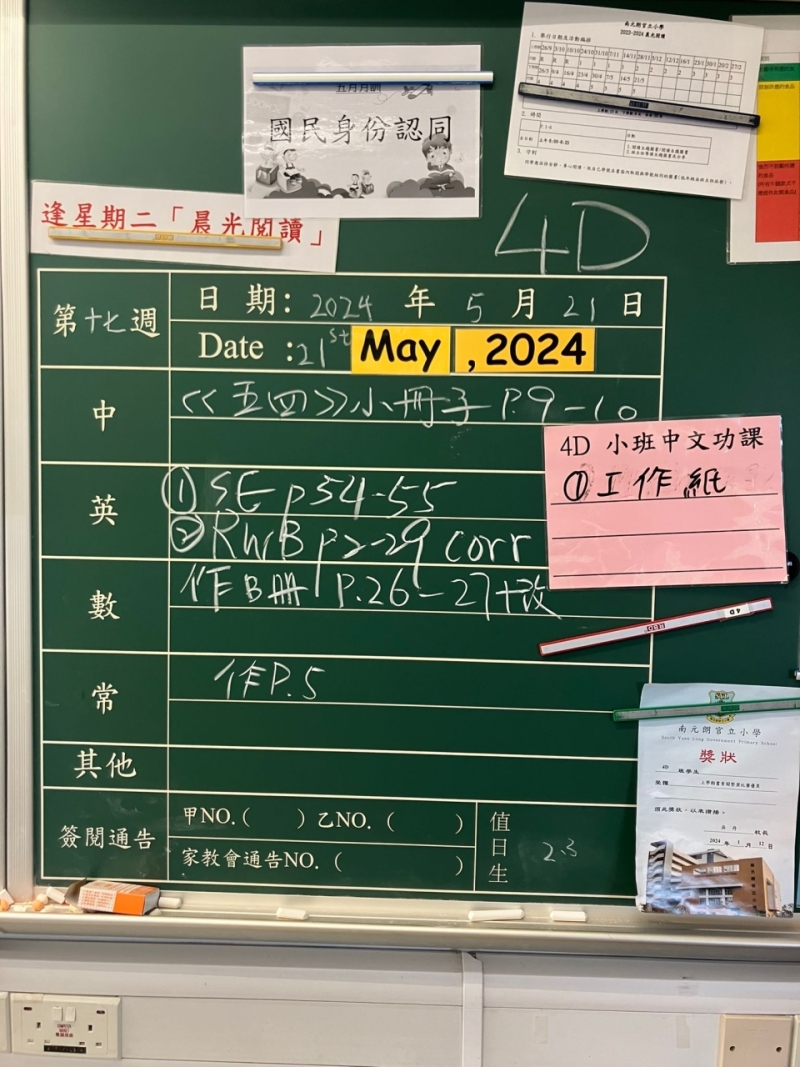 南元朗官立小學
2023-2024 晨光閱讀
1. 舉行日期及活動編排
2. 時間
3. 守則
五月月訓
國民身份認同
逢星期二「晨光閱讀」
4D
第十七週
日期: 2024 年 5 月 21 日
Date :21st May ,2024
中
<<五四>>小冊子 P.9-10
4D 小班中文功課
① 工作紙
英
① SE p54-55
② RWB p2-29 corr
數
作B冊 P.26-27+改
4D
常
作P.5
其他
簽閱通告
甲NO.( ) 乙NO. ( )
家教會通告NO. ( )
值日生
2.3
南元朗官立小學
South Yuen Long Government Primary School
獎狀
4D 班學生
校長
2024 年 1 月 12 日